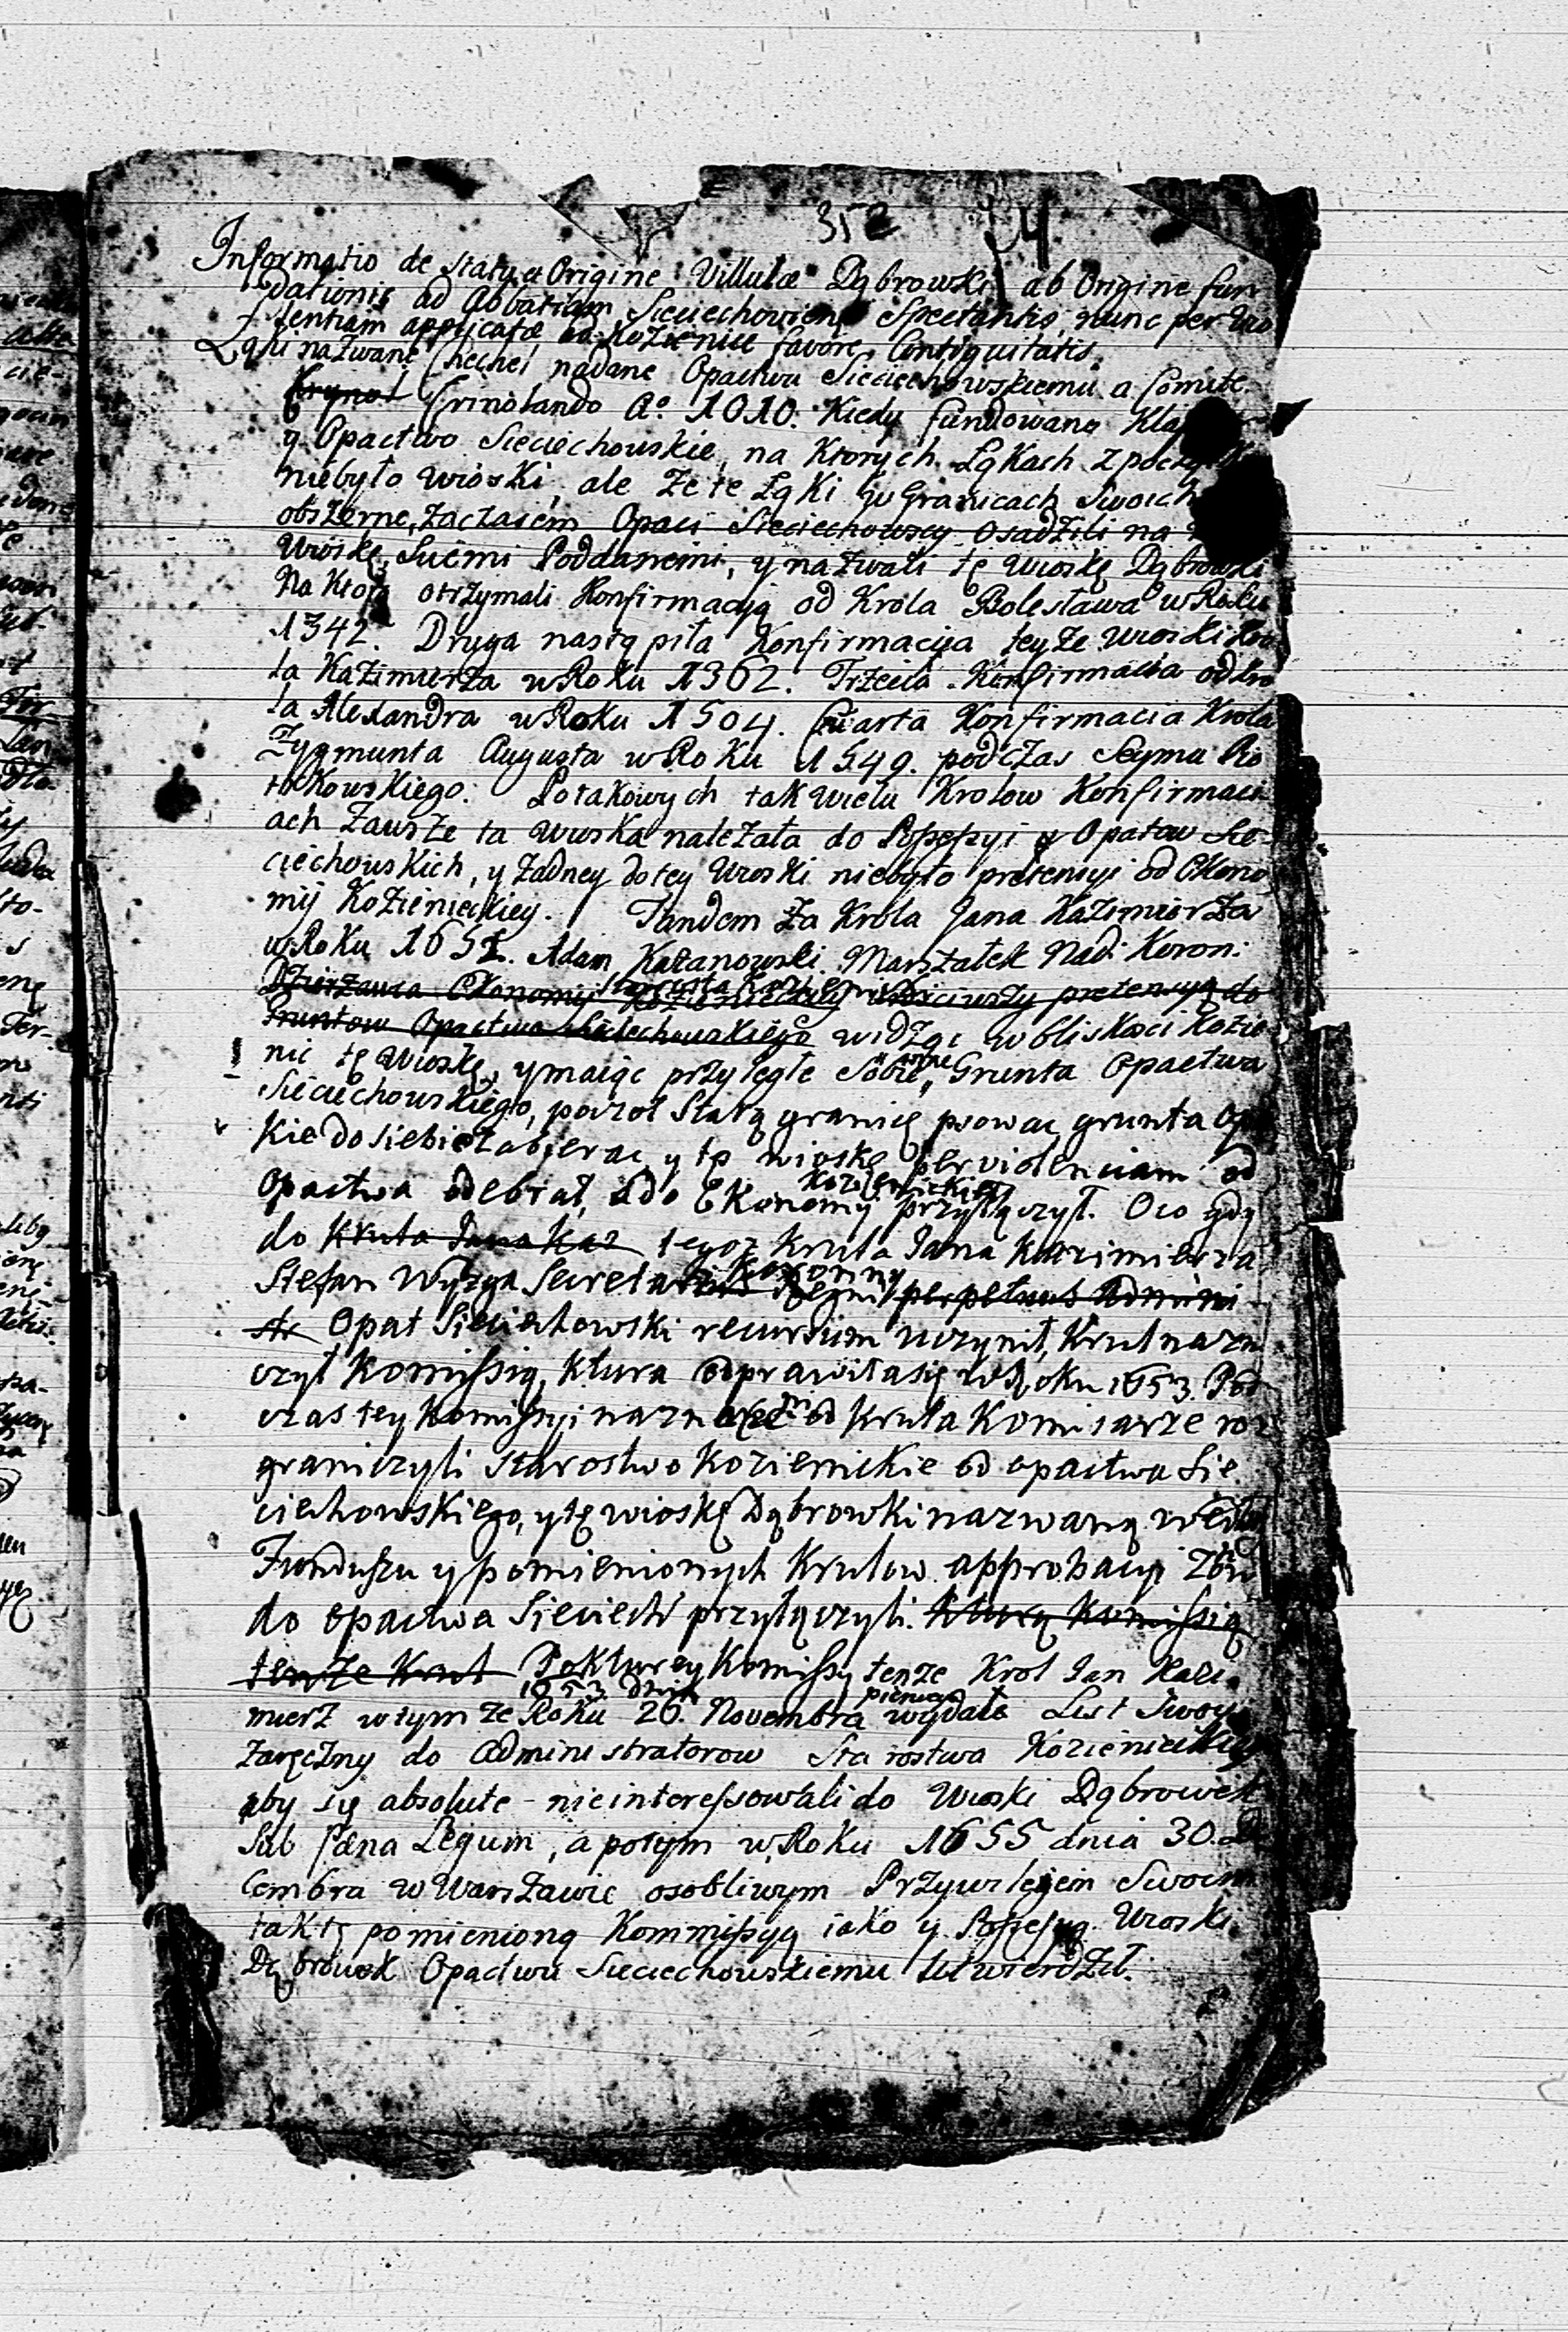 352 74
Informatio de statu et Origine Villulæ Dąbrowki ab Origine fun
dationis ad Abbatiam Sieciechoviens Spectantis, nunc per vio
lentiam applicatæ ad Kozienice favore Contiguitatis.
Łąki nazwane Chechel nadane Opactwu Sieciechowskiemu a Comite
Crynol Crinolando Aº 1010. Kiedy fundowano
y Opactwo Sieciechowskie, na Ktorych Łąkach z
niebyło wioski, ale że te Łąki w Granicach Swoich
obszerne, zaczasem Opaci Sieciechowscy osadzili na
Wioskę, Swémi Poddanemi, y nazwali tę Wioskę Dąbrowki
Na Ktorą otrzymali Konfirmacyą od Krola Bolesława w Roku
1342. Druga nastąpiła Konfirmacyja teyże Wioski Kro
la Kazimierza w Roku 1362. Trzecia Konfirmacia od Kro
la Alexandra w Roku 1504. Czwarta Konfirmacia Krola
Zygmunta Augusta w Roku 1549. podczas Seymu Pio
trkowskiego. Po takowych tak wielu Krolow Konfirmaci
ach Zawsze ta wioska należała do Possessyi Opatow Sie
ciechowskich, y żadney do tey Wioski niebyło pretensyi od Ekono
mij Kozienieckiey. Tandem za Krola Jana Kazimierza
w Roku 1652. Adam Kazanowski Marszałek Nad: Koron:
Starosta Kozienicki
Dzierżawca Ekonomij Kozienieckiey pretensyą do
Gruntow Opactwa Sieciechowskiego widząc w bliskości Kozie
nic tę Wioskę, y maiąc przyległe Sobie Grunta Opactwa
Sieciechowskiego, począł Starą granicę psować grunta
Kie do siebie zabierać, y tę wioskę per violenciam od
Kozienickiey
Opactwa odebrał, a do Ekonomij przyłączył. Oco gdy
do Krula Jana Kaz tegoż Krula Jana Kazimierza
Koronny
Stefan Wyżga Secretarius Regni perpetuus Admini
str Opat Sieciechowski recursum uczynił, Krul nazna
czył Komissią, ktura odprawiła się w Roku 1653. Pod
czas tey Komissyi naznaczeni od Krula Komisarze roz
graniczyli Starostwo Kozienickie od opactwa Sie
ciechowskiego, y tę wioskę Dąbrowki nazwaną według
Funduszu y pomienionych Krulow approbacyi
do opactwa Sieciech przyłączyli. Kturą Komissią
tenże Krul Po kturey Komissy tenże Krol Jan Kazi
1653 dnia
mierz w tymże Roku 26. Novembra wydał List Swoy
zaręczny do Administratorow Starostwa Kozienickiego
aby się absolute nieinteressowali do Wioski Dąbrowek
Sub pæna Legum, a potym w Roku 1655 dnia 30. De
cembra w Warszawie osobliwym Przywilejem Swoim
tak tę pomienioną Kommissyą iako y Possessyą Wioski
Dąbrowek Opactwu Sieciechowskiemu utwierdził.